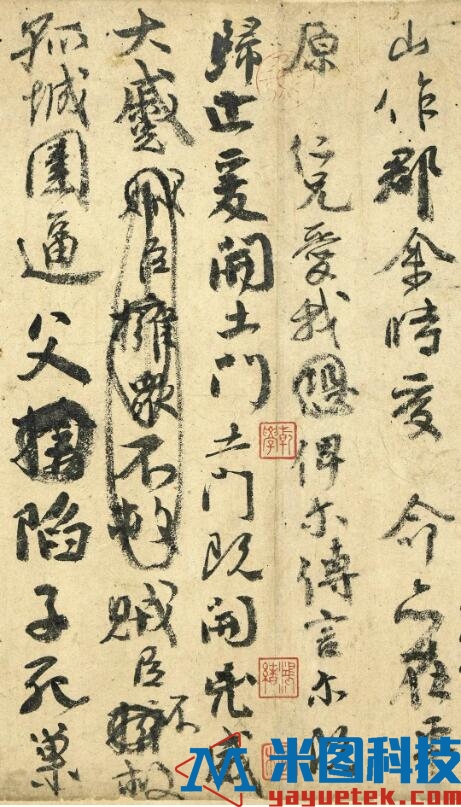 山作郡余時受 命亦在平
原 仁兄愛我俾尔傳言尔既
歸止爰開土門土門既開凶威
大蹙賊臣擁衆不救賊臣不救
孤城圍逼父陷子死巢
米图科技
www.yayuetek.com